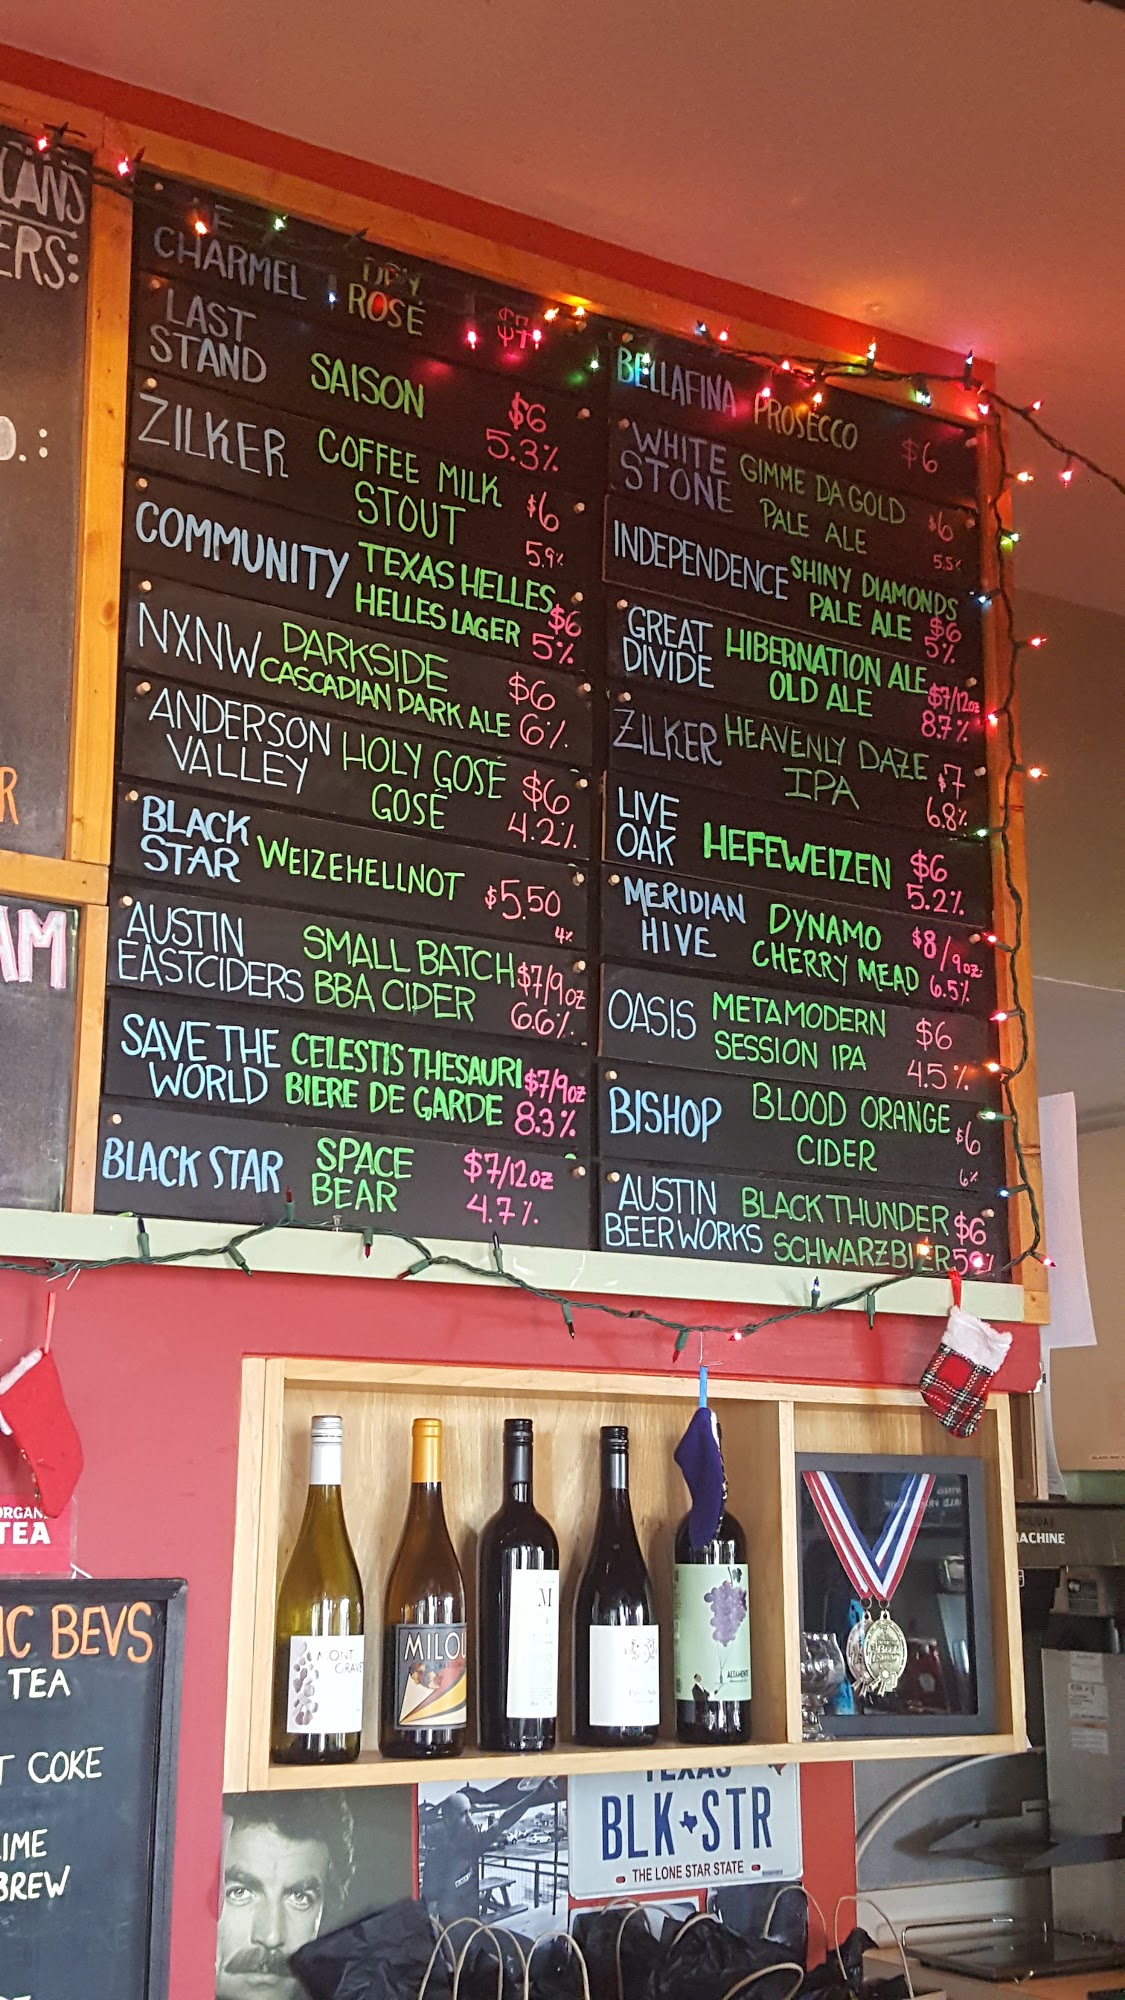 CANS
ERS:
O.:
R
AM
CHARMEL DRY
ROSÉ
LAST
STAND SAISON $6
5.3%
ZILKER COFFEE MILK
STOUT $6
5.9%
COMMUNITY TEXAS HELLES
HELLES LAGER $6
5%
NXNW DARKSIDE
CASCADIAN DARK ALE $6
6%
ANDERSON
VALLEY HOLY GOSE
GOSÉ $6
4.2%
BLACK
STAR WEIZEHELLNOT $5.50
4%
AUSTIN
EASTCIDERS SMALL BATCH
BBA CIDER $7/9OZ
6.6%
SAVE THE
WORLD CELESTIS THESAURI
BIERE DE GARDE $7/9OZ
8.3%
BLACK STAR SPACE
BEAR $7/12OZ
4.7%
BELLAFINA PROSECCO $6
WHITE
STONE GIMME DA GOLD
PALE ALE $6
5.5%
INDEPENDENCE SHINY DIAMONDS
PALE ALE $6
5%
GREAT
DIVIDE HIBERNATION ALE
OLD ALE $7/12OZ
8.7%
ZILKER HEAVENLY DAZE
IPA $7
6.8%
LIVE
OAK HEFEWEIZEN $6
5.2%
MERIDIAN
HIVE DYNAMO
CHERRY MEAD $8/9OZ
6.5%
OASIS METAMODERN
SESSION IPA $6
4.5%
BISHOP BLOOD ORANGE
CIDER $6
6%
AUSTIN
BEERWORKS BLACK THUNDER
SCHWARZBIER $6
ORGAN
TEA
IC BEVS
TEA
T COKE
LIME
BREW
MONT
GRAVE
MILOU
M
ALTAMENTE
ACHINE
TEXAS
BLK STR
THE LONE STAR STATE